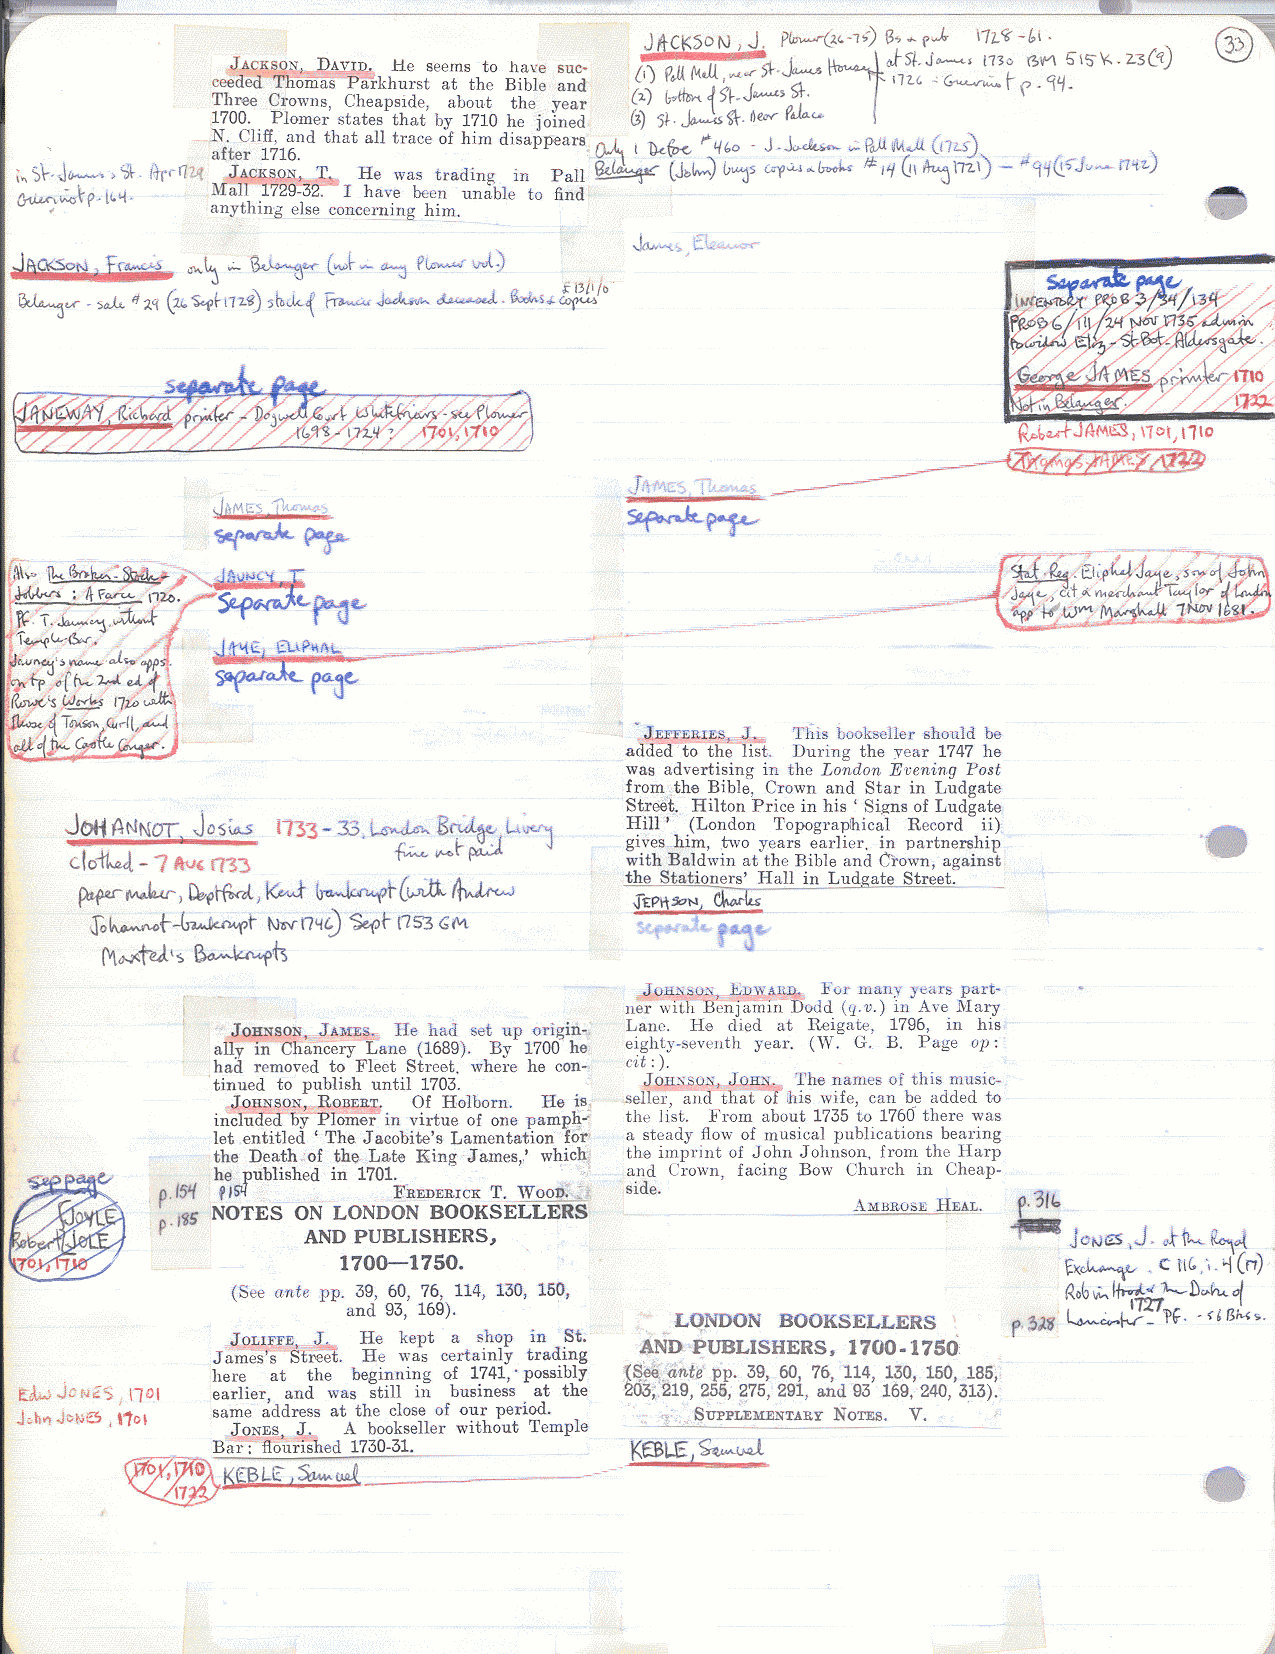 33
JACKSON, J. Plomer (26-75) Bs & pub 1728-61.
(1) Pall Mall, near St. James House
(2) bottom of St. James St.
(3) St. James St. Near Palace
at St. James 1730 BM 515 K. 23(9)
1726 - Guerinot p. 94.
Only 1 Defoe #460 - J. Jackson in Pall Mall (1725)
Belanger (John) buys copies & books #14 (11 Aug 1721) - #94 (15 June 1742)
JACKSON, DAVID. He seems to have suc-
ceeded Thomas Parkhurst at the Bible and
Three Crowns, Cheapside, about the year
1700. Plomer states that by 1710 he joined
N. Cliff, and that all trace of him disappears
after 1716.
JACKSON, T. He was trading in Pall
Mall 1729-32. I have been unable to find
anything else concerning him.
in St. James's St. Apr 1729
Guerinot p. 164.
James, Eleanor
JACKSON, Francis only in Belanger (not in any Plomer vol.)
Belanger - sale #29 (26 Sept 1728) stock of Francis Jackson deceased. Books & copies
£13/1/0
Separate page
INVENTORY PROB 3/34/134
PROB 6/111/24 NOV 1735 admin
to widow Eliz - St. Bot. Aldersgate.
George JAMES printer 1710
Not in Belanger. 1722
Robert JAMES, 1701, 1710
Thomas JAMES 1722
separate page
JANEWAY, Richard printer - Dogwell Court Whitefriars - see Plomer
1698-1724? 1701, 1710
JAMES, Thomas
separate page
JAMES, Thomas
separate page
JAUNCY, T
separate page
Also The Broken Stock-
Jobbers: A Farce 1720.
Pf. T. Jauncy, without
Temple-Bar.
Jauncy's name also apps.
on tp of the 2nd ed of
Rowe's Works 1720 with
those of Tonson, Curll, and
all of the Castle Conger.
JAYE, ELIPHAL
separate page
Stat. Reg. Eliphal Jaye, son of John
Jaye, cit & merchant Taylor of London
app to Wm Marshall 7 NOV 1681.
JEFFERIES, J. This bookseller should be
added to the list. During the year 1747 he
was advertising in the London Evening Post
from the Bible, Crown and Star in Ludgate
Street. Hilton Price in his ' Signs of Ludgate
Hill ' (London Topographical Record ii)
gives him, two years earlier, in partnership
with Baldwin at the Bible and Crown, against
the Stationers' Hall in Ludgate Street.
JEPHSON, Charles
separate page
JOHANNOT, Josias 1733-33, London Bridge, Livery
clothed - 7 AUG 1733 fine not paid
paper maker, Deptford, Kent bankrupt (with Andrew
Johannot - bankrupt Nov 1746) Sept 1753 GM
Maxted's Bankrupts
JOHNSON, EDWARD. For many years part-
ner with Benjamin Dodd (q.v.) in Ave Mary
Lane. He died at Reigate, 1796, in his
eighty-seventh year. (W. G. B. Page op:
cit:).
JOHNSON, JOHN. The names of this music-
seller, and that of his wife, can be added to
the list. From about 1735 to 1760 there was
a steady flow of musical publications bearing
the imprint of John Johnson, from the Harp
and Crown, facing Bow Church in Cheap-
side.
AMBROSE HEAL.
p. 316
JOHNSON, JAMES. He had set up origin-
ally in Chancery Lane (1689). By 1700 he
had removed to Fleet Street, where he con-
tinued to publish until 1703.
JOHNSON, ROBERT. Of Holborn. He is
included by Plomer in virtue of one pamph-
let entitled ' The Jacobite's Lamentation for
the Death of the Late King James,' which
he published in 1701.
p. 154 p154 FREDERICK T. WOOD.
p. 185 NOTES ON LONDON BOOKSELLERS
AND PUBLISHERS,
1700—1750.
(See ante pp. 39, 60, 76, 114, 130, 150,
and 93, 169).
sep page
JOYLE
Robert JOLE
1701, 1710
JOLIFFE, J. He kept a shop in St.
James's Street. He was certainly trading
here at the beginning of 1741, possibly
earlier, and was still in business at the
same address at the close of our period.
JONES, J. A bookseller without Temple
Bar: flourished 1730-31.
Edw JONES, 1701
John JONES, 1701
JONES, J. at the Royal
Exchange. C 116, i. 4 (17)
Robin Hood & the Duke of
Lancaster - 1727 Pf. - s 6 Bkss.
p. 328 LONDON BOOKSELLERS
AND PUBLISHERS, 1700-1750
(See ante pp. 39, 60, 76, 114, 130, 150, 185,
203, 219, 255, 275, 291, and 93 169, 240, 313).
SUPPLEMENTARY NOTES. V.
KEBLE, Samuel
1701, 1710
1722
KEBLE, Samuel